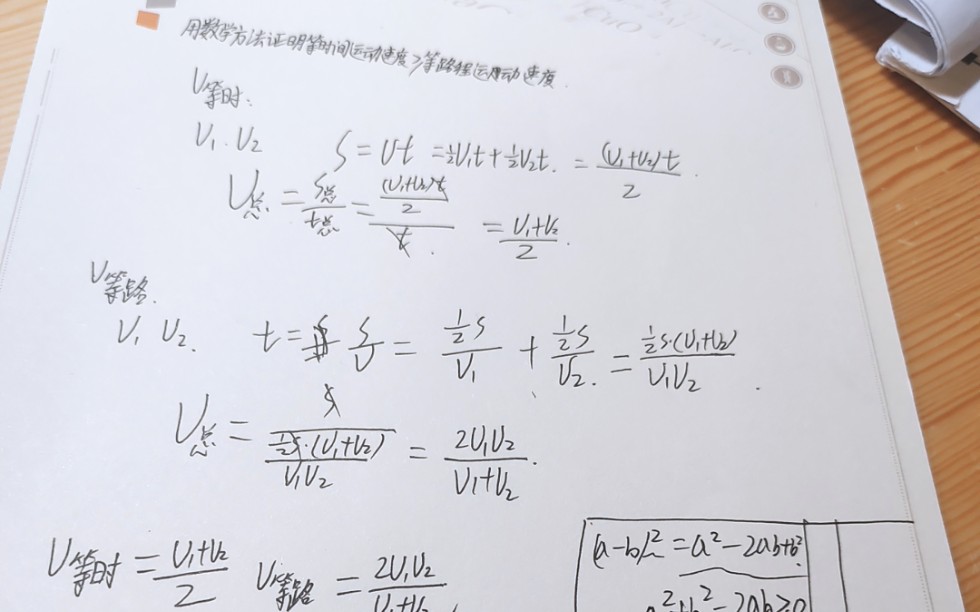 用数学方法证明等时间运动速度>等路程运动速度.
V等时.
V₁. V₂ S=Vt=½V₁t+½V₂t.=(V₁+V₂)t/2.
V总=S总/t总=((V₁+V₂)t/2)/t.=(V₁+V₂)/2.
V等路.
V₁ V₂. t=S/V=½S/V₁+½S/V₂.=½S·(V₁+V₂)/V₁V₂.
V总=S/(½S·(V₁+V₂)/V₁V₂)=2V₁V₂/(V₁+V₂).
V等时=(V₁+V₂)/2 V等路=2V₁V₂/(V₁+V₂)
(a-b)²=a²-2ab+b²
a²+b²-2ab≥0